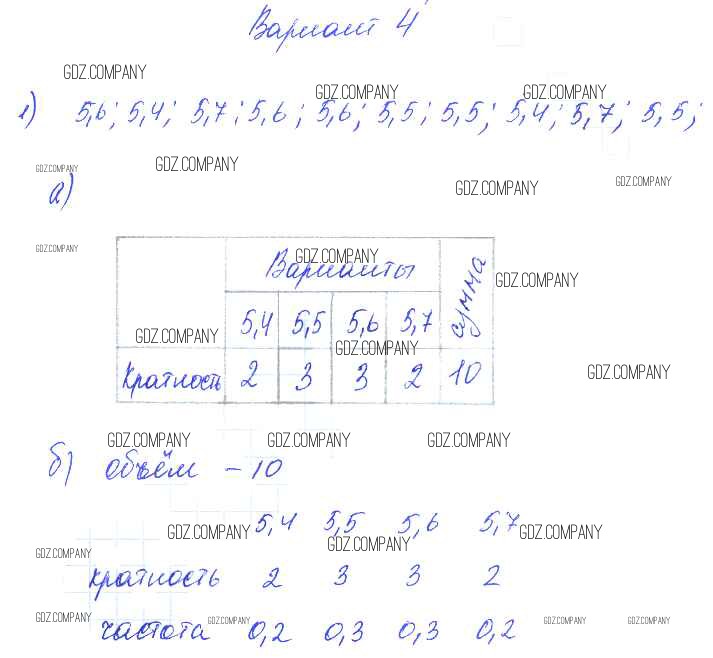 Вариант 4
GDZ.COMPANY
GDZ.COMPANY GDZ.COMPANY
1) 5,6; 5,4; 5,7; 5,6; 5,6; 5,5; 5,5; 5,4; 5,7; 5,5;
GDZ.COMPANY GDZ.COMPANY
GDZ.COMPANY GDZ.COMPANY
а)
GDZ.COMPANY GDZ.COMPANY
Варианты сумма
GDZ.COMPANY
5,4 5,5 5,6 5,7
GDZ.COMPANY GDZ.COMPANY
Кратность 2 3 3 2 10
GDZ.COMPANY
GDZ.COMPANY GDZ.COMPANY GDZ.COMPANY
б) объём - 10
5,4 5,5 5,6 5,7
GDZ.COMPANY GDZ.COMPANY GDZ.COMPANY
GDZ.COMPANY
кратность 2 3 3 2
GDZ.COMPANY GDZ.COMPANY GDZ.COMPANY GDZ.COMPANY
частота 0,2 0,3 0,3 0,2